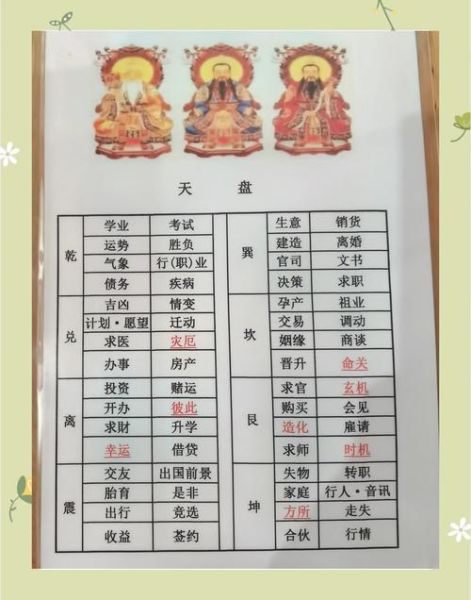 天 盘
乾
学业 考试
运势 胜负
气象 行(职)业
债务 疾病
兑
吉凶 情变
计划·愿望 迁动
求医 灾厄
办事 房产
离
投资 赌运
开办 彼此
求财 升学
幸运 借贷
震
交友 出国前景
胎育 是非
出行 竞选
收益 签约
巽
生意 销货
建造 离婚
官司 文书
决策 求职
坎
孕产 祖业
交易 调动
姻缘 商谈
晋升 命关
艮
求官 玄机
购买 会见
造化 雇请
求师 时机
坤
失物 转职
家庭 行人·音讯
方所 走失
合伙 行情